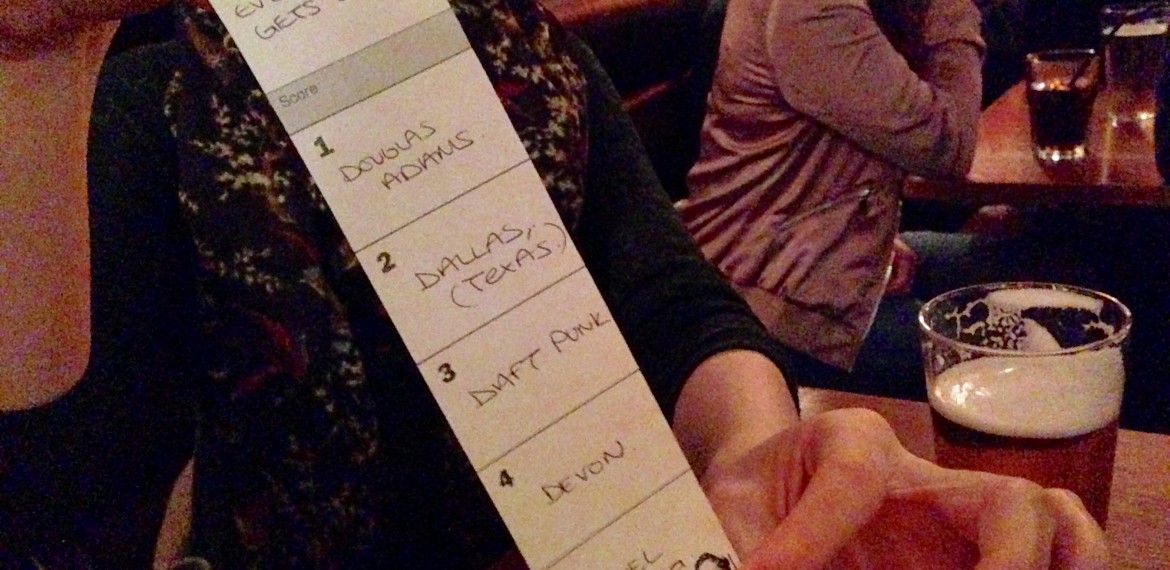 GETS
Score
1
DOUGLAS
ADAMS.
2
DALLAS,
(TEXAS.)
3
DAFT PUNK
4
DEVON.